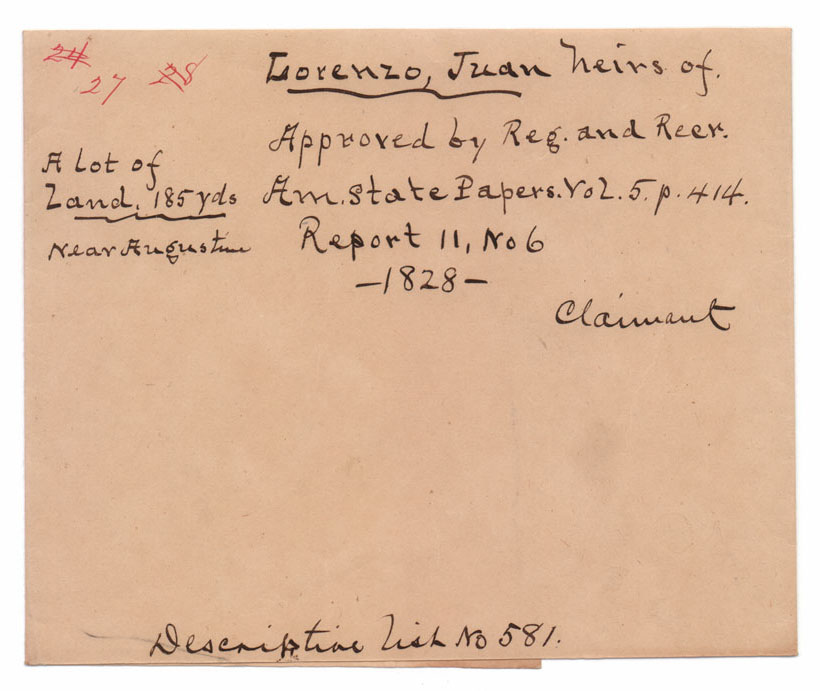 24 27 28
Lorenzo, Juan heirs of.
Approved by Reg. and Recr.
A lot of
Land, 185 yds
Near Augustine
Am. State Papers. Vol. 5. p. 414.
Report 11, No 6
—1828—
Claimant
Descriptive list No 581.